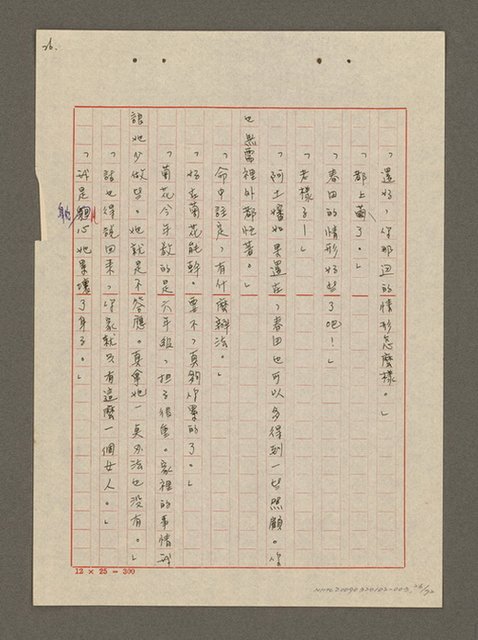 26.
「還好,你那边的情形怎麼樣。」
「都上蔟了。」
「春田的情形好些了吧!」
「老樣子!」
「阿土嬸如果還在,春田也可以多得到一些照顧。你
也無需裡外都忙著。」
「命中註定,有什麼辦法。」
「好在菊花能幹。要不,真夠你累的了。」
「菊花今年教的是六年級,担子很重。家裡的事情我
讓她少做些。她就是不答應。真拿她一臭办法也沒有。」
「話也得說回來,你家就只有這麼一個女人。」
「我是躭心她累壞了身子。」
12 × 25 = 300
NMTL20090320102-003
26/72